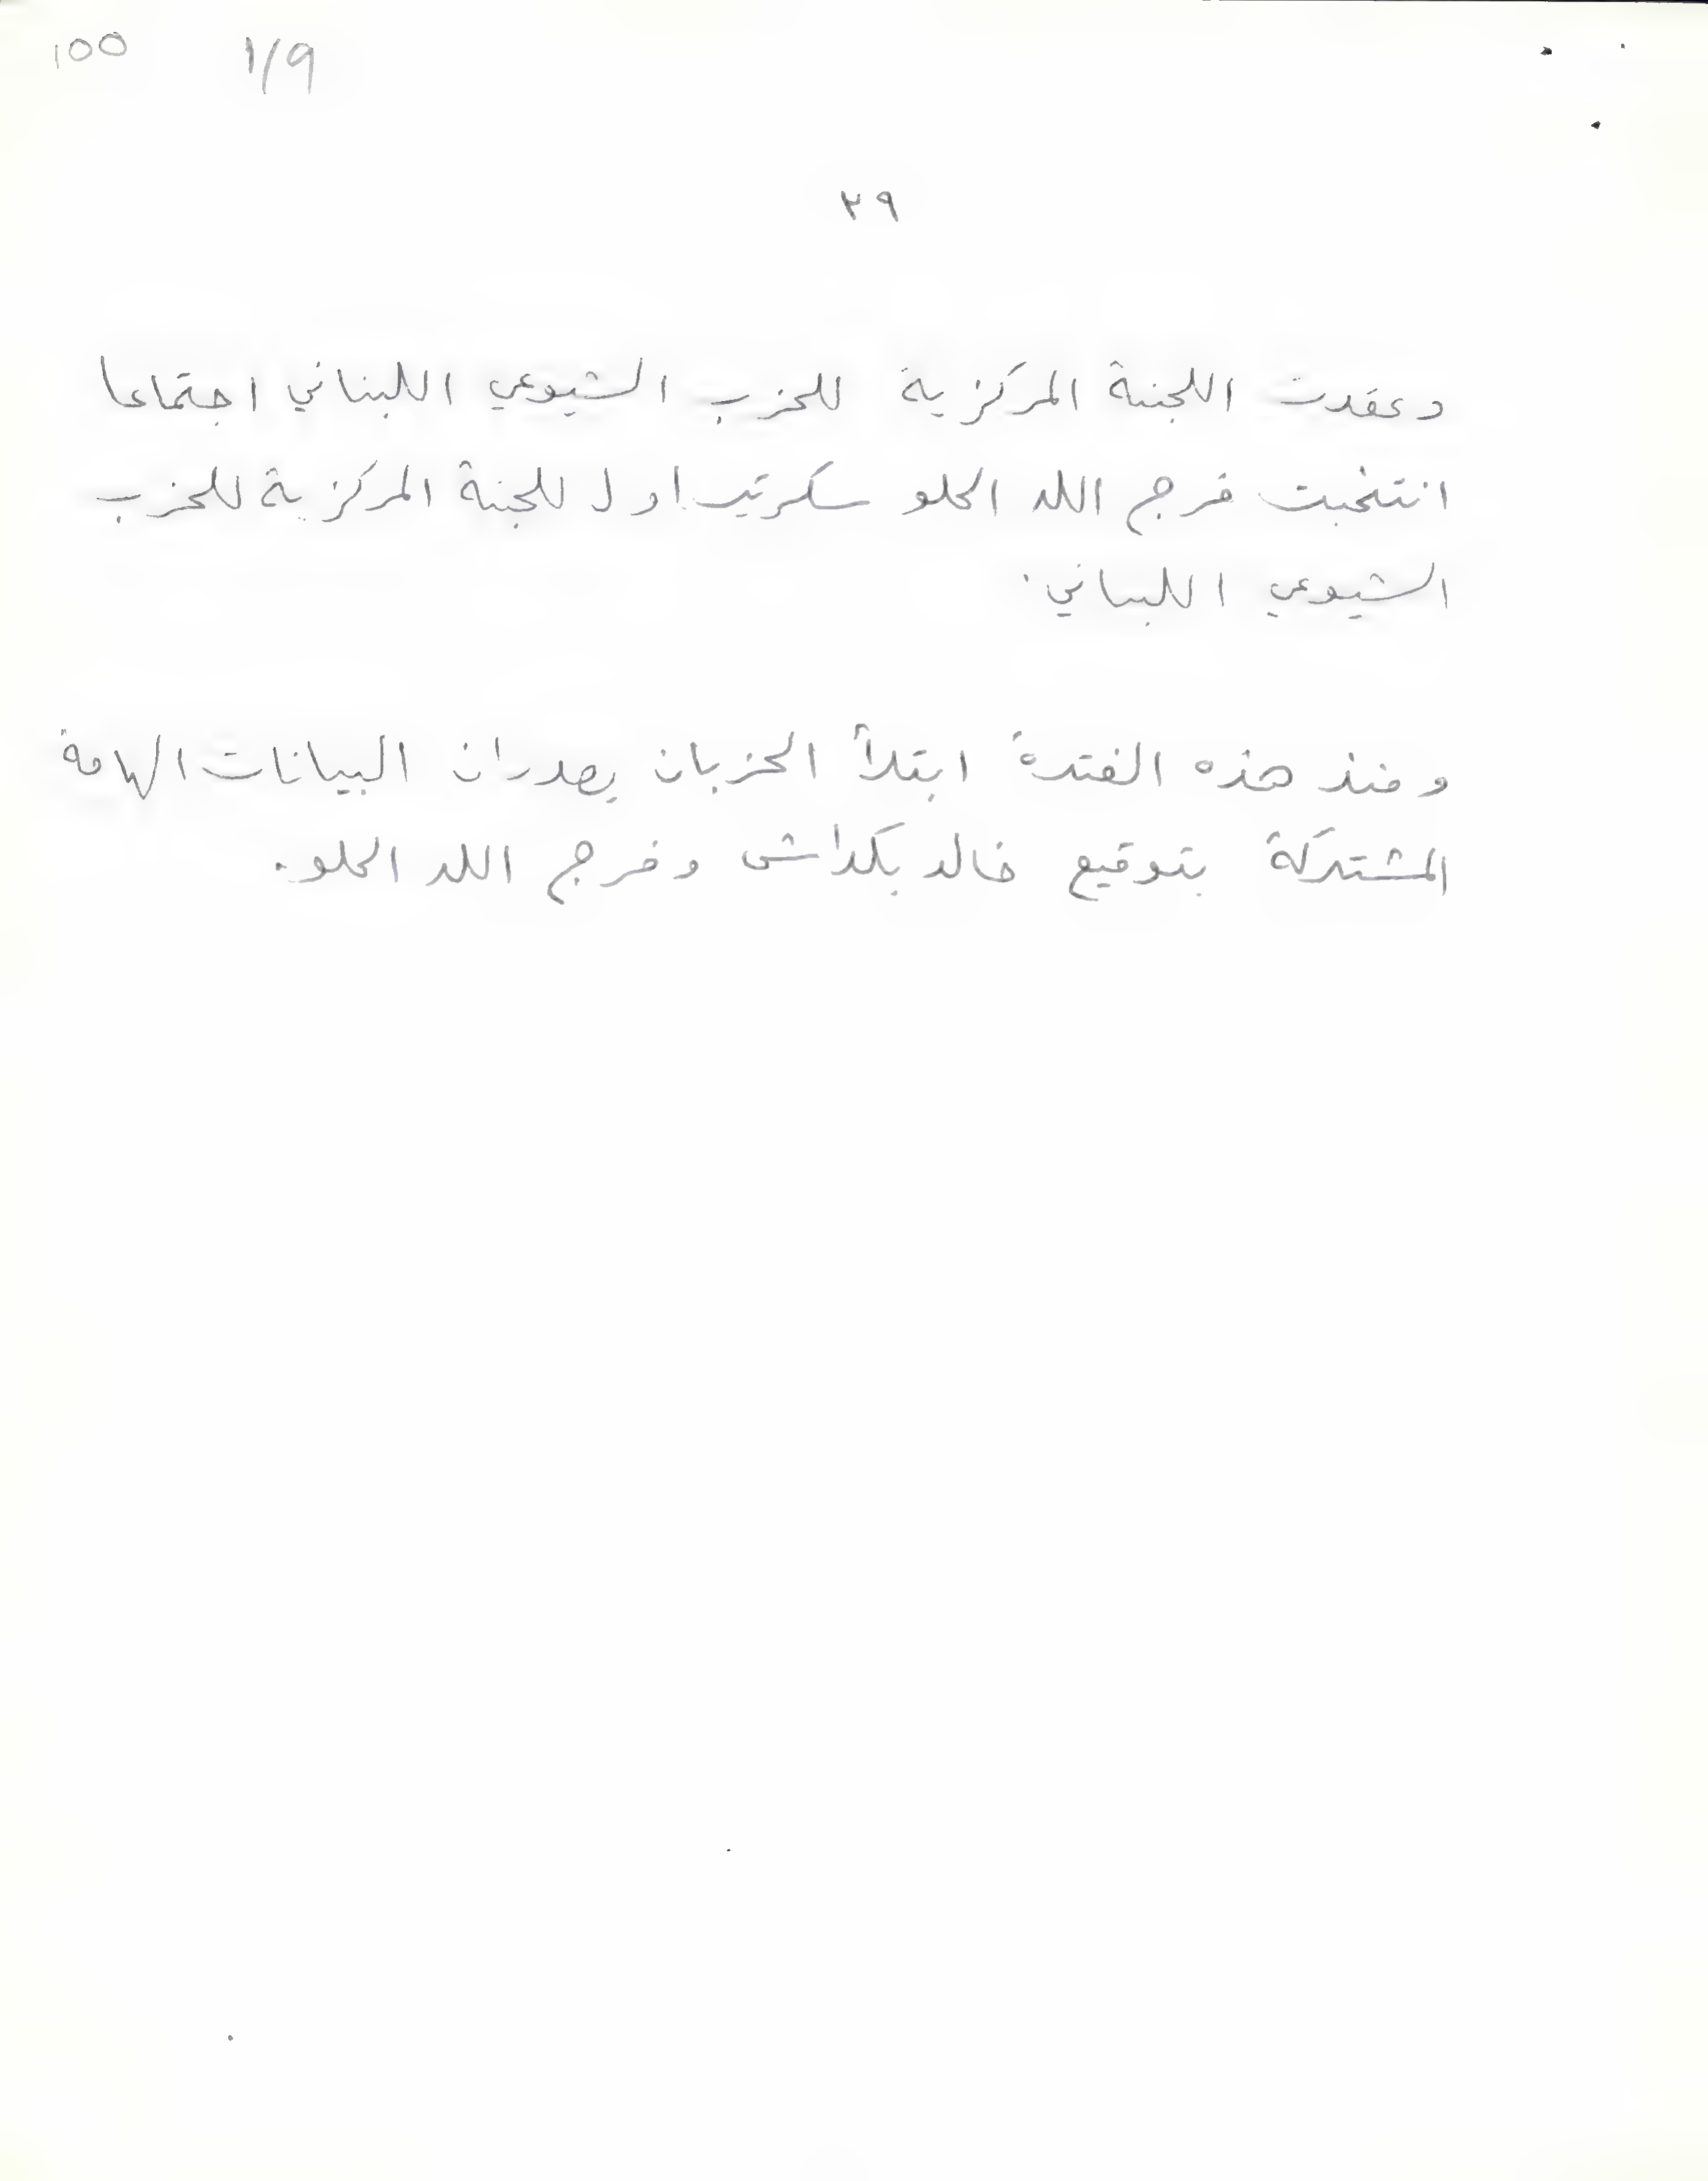 100 1/9
٢٩
وعقدت اللجنة المركزية للحزب الشيوعي اللبناني اجتماعا
انتخبت فرج الله الحلو سكرتير اول للجنة المركزية للحزب
الشيوعي اللبناني.
ومنذ هذه الفترة ابتدأ الحزبان يصدران البيانات الهامة
المشتركة بتوقيع خالد بكداش وفرج الله الحلو.